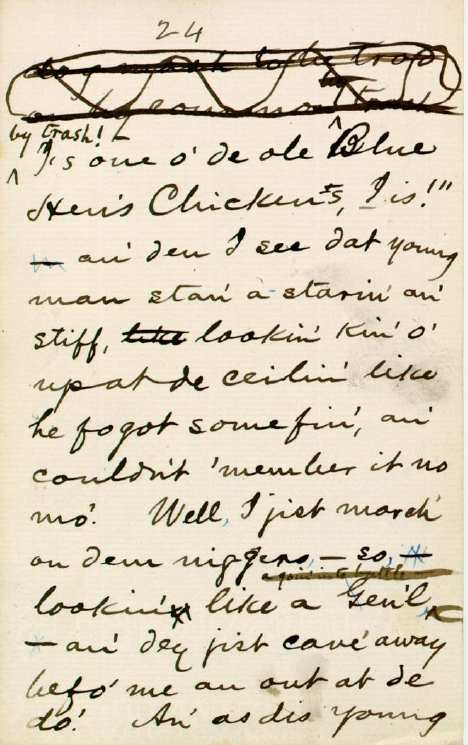 24
by trash! —
I's one o' de ole Blue
Hen's Chickens, I is!"
— an' den I see dat young
man stan' a-starin' an'
stiff, like lookin' kin' o'
up at de ceilin' like
he fogot somefin', an'
couldn't 'member it no
mo'. Well, I jist march'
on dem niggers, — so, —
lookin' like a Gen'l,
— an' dey jist cave' away
befo' me an out at de
do'. An' as dis young